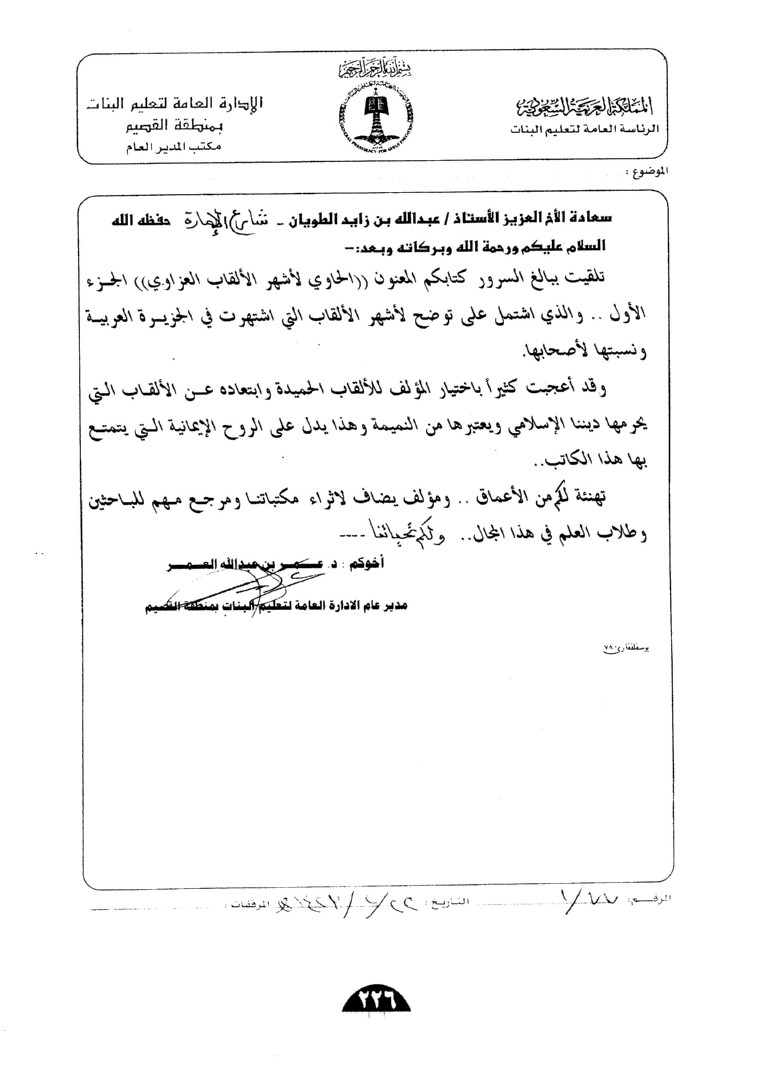 بسم الله الرحمن الرحيم
المملكة العربية السعودية
الرئاسة العامة لتعليم البنات
الإدارة العامة لتعليم البنات
بمنطقة القصيم
مكتب المدير العام
الموضوع :
سعادة الأخ العزيز الأستاذ / عبدالله بن زايد الطويان - شارع الإمارة حفظه الله
السلام عليكم ورحمة الله وبركاته وبعد:-
تلقيت ببالغ السرور كتابكم المعنون ((الحاوي لأشهر الألقاب العزاوي)) الجزء
الأول .. والذي اشتمل على توضح لأشهر الألقاب التي اشتهرت في الجزيرة العربية
ونسبتها لأصحابها.
وقد أعجبت كثيراً باختيار المؤلف للألقاب الحميدة وابتعاده عن الألقاب التي
يحرمها ديننا الإسلامي ويعتبرها من النميمة وهذا يدل على الروح الإيمانية التي يتمتع
بها هذا الكاتب..
تهنئة لكم من الأعماق .. ومؤلف يضاف لاثراء مكتباتنا ومرجع مهم للباحثين
وطلاب العلم في هذا المجال.. ولكم تحياتنا ----
أخوكم : د. عمر بن عبدالله العمر
مدير عام الادارة العامة لتعليم البنات بمنطقة القصيم
الرقم: ١/٧٧ التاريخ: ٢٢/٦/ المرفقات:
٢٢٦